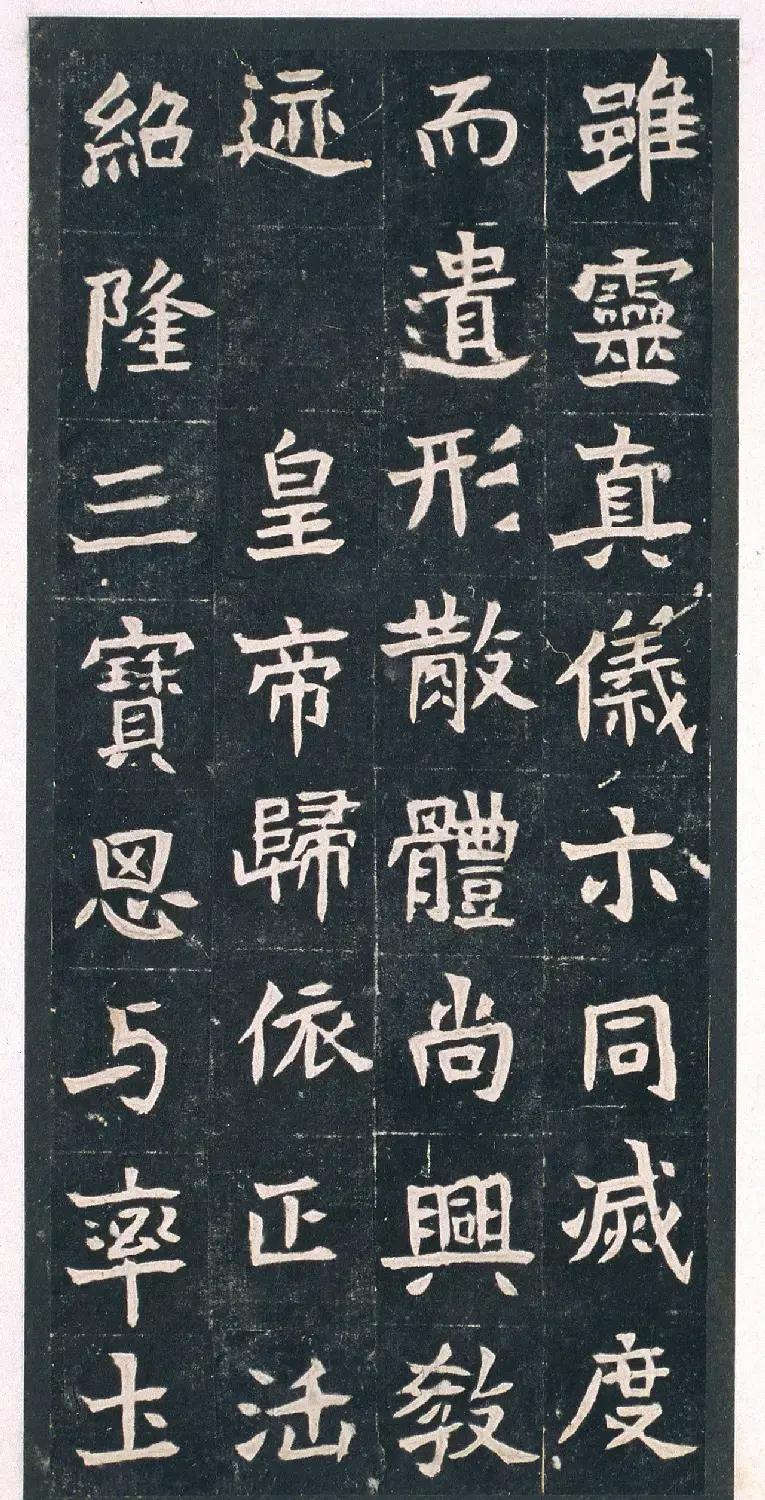 雖靈真儀示同滅度
而遺形散體尚興教
迹 皇帝歸依正法
紹隆三寶思与率土